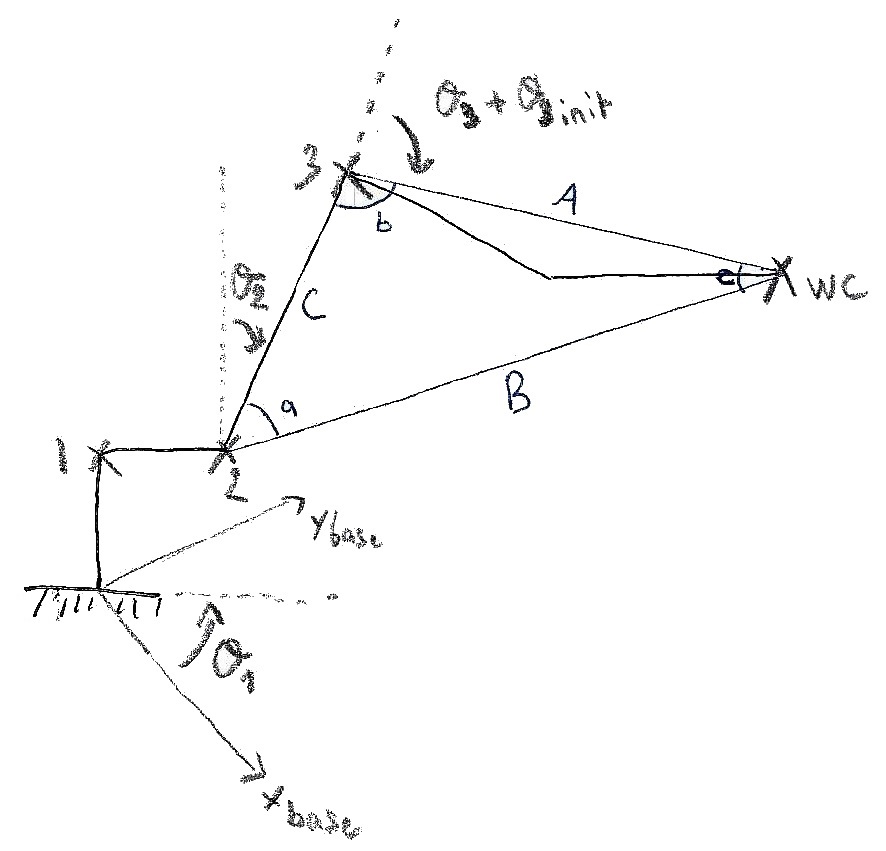 θ3 + θ3init
3
A
b
θ2
C
c
WC
a
B
1
2
Ybase
θ1
Xbase